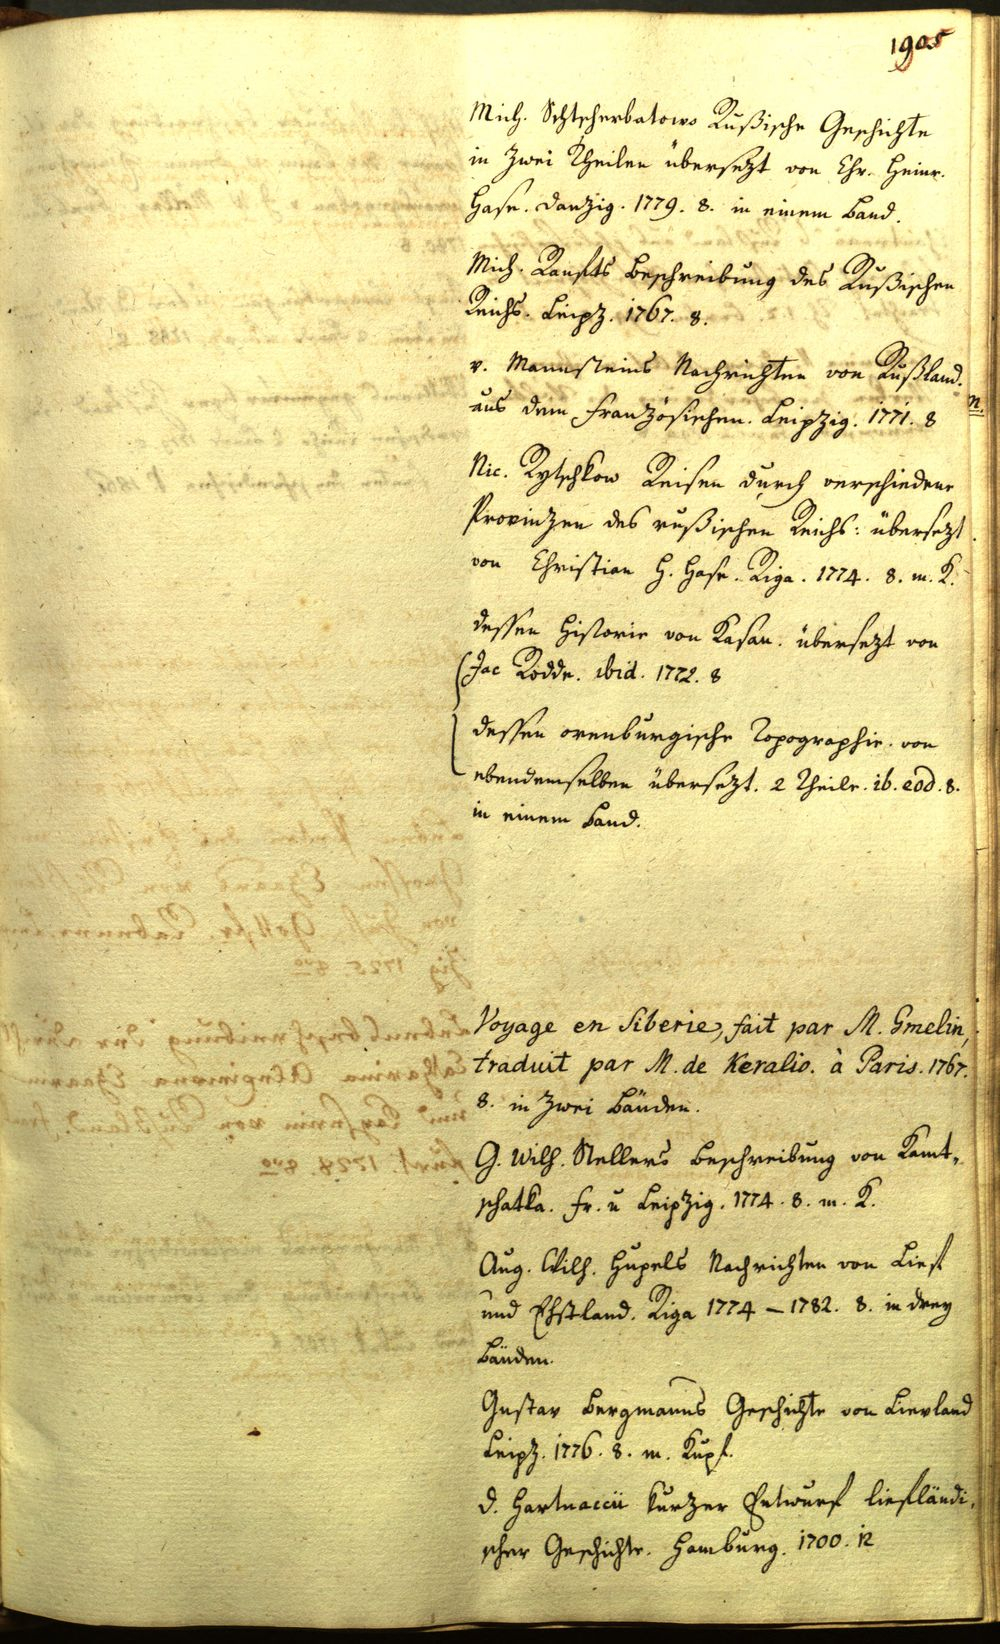 1905
Mich. Schtscherbatows Rußische Geschichte
in zwei Theilen übersezt von Chr. Heinr.
Hase. Danzig. 1779. 8. in einem Band.
Mich. Ranfts Beschreibung des Rußischen
Reichs. Leipz. 1767. 8.
v. Mannsteins Nachrichten von Rußland.
aus dem französischen. Leipzig. 1771. 8
n.
Nic. Rytschkow Reisen durch verschiedene
Provinzen des rußischen Reichs: übersezt
von Christian H. Hase. Riga. 1774. 8. m. K.
dessen Historie von Kasan. übersezt von
Jac Rodde. ibid. 1772. 8
dessen orenburgische Topographie. von
ebendemselben übersezt. 2 Theile. ib. eod. 8.
in einem Band.
Voyage en Siberie, fait par M. Gmelin,
traduit par M. de Keralio. à Paris. 1767.
8. in zwei Bänden.
G. Wilh. Stellers Beschreibung von Kamt-
schatka. Fr. u Leipzig. 1774. 8. m. K.
Aug. Wilh. Hupels Nachrichten von Lief
und Ehstland. Riga 1774 – 1782. 8. in drey
Bänden.
Gustav Bergmanns Geschichte von Lievland
Leipz. 1776. 8. m. Kupf.
D. Hartnaccii kurzer Entwurf liefländi-
scher Geschichte. Hamburg. 1700. 12